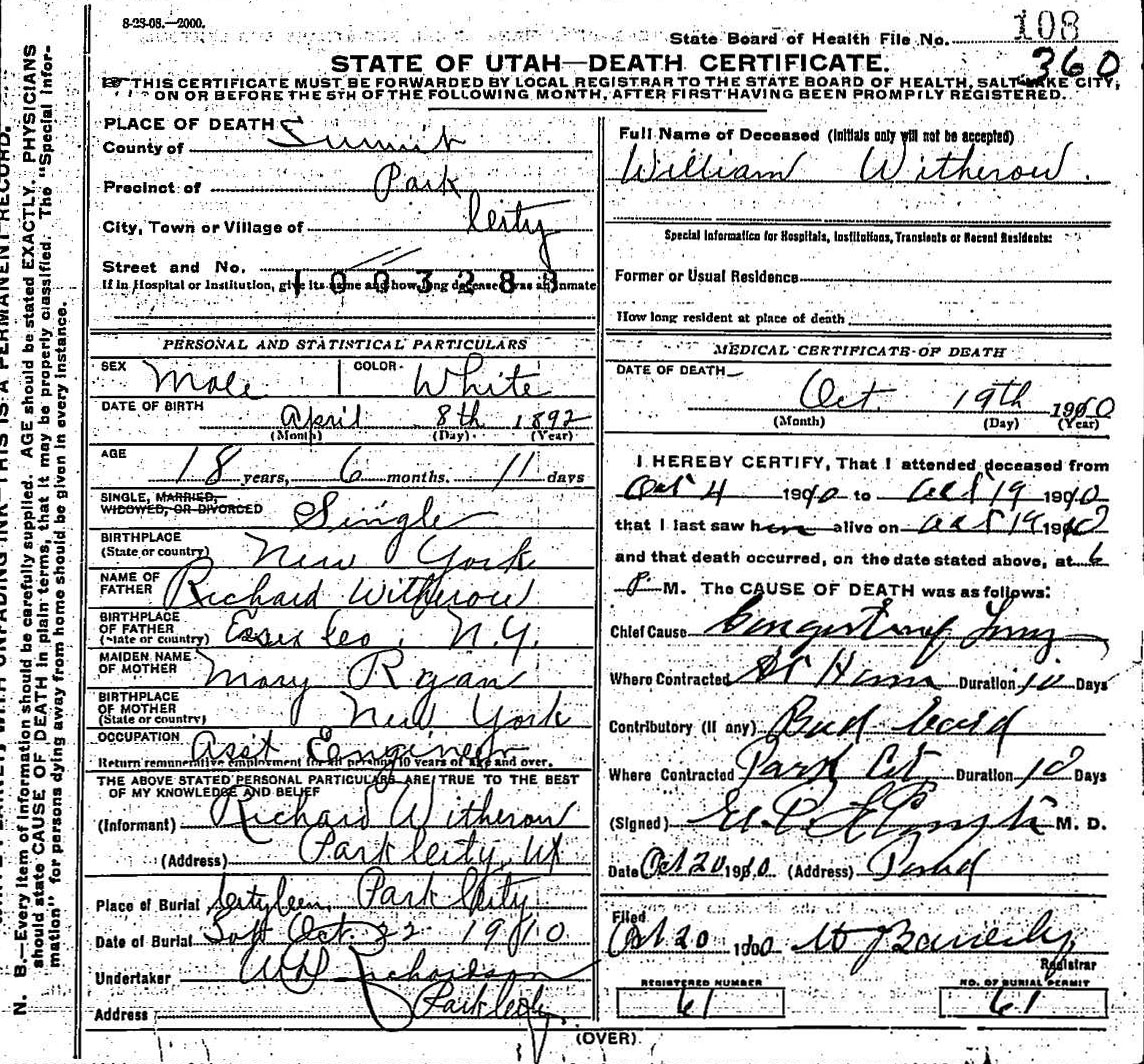 8-23-08.—2000.
State Board of Health File No. 108
360
STATE OF UTAH—DEATH CERTIFICATE.
THIS CERTIFICATE MUST BE FORWARDED BY LOCAL REGISTRAR TO THE STATE BOARD OF HEALTH, SALT LAKE CITY,
ON OR BEFORE THE 5TH OF THE FOLLOWING MONTH, AFTER FIRST HAVING BEEN PROMPTLY REGISTERED.
PLACE OF DEATH
County of Summit
Precinct of Park
City, Town or Village of City
Street and No. //
1003283
If in Hospital or Institution, give its name and how long deceased was an inmate
PERSONAL AND STATISTICAL PARTICULARS
SEX Male COLOR White
DATE OF BIRTH
April 8th 1892
(Month) (Day) (Year)
AGE
18 years, 6 months. 11 days
SINGLE, MARRIED,
WIDOWED, OR DIVORCED Single
BIRTHPLACE
(State or country) New York
NAME OF
FATHER Richard Witherow
BIRTHPLACE
OF FATHER
(State or country) Essex Co, N.Y.
MAIDEN NAME
OF MOTHER Mary Ryan
BIRTHPLACE
OF MOTHER
(State or country) New York
OCCUPATION
Asst Engineer
Return remunerative employment for all persons 10 years of age and over.
THE ABOVE STATED PERSONAL PARTICULARS ARE TRUE TO THE BEST
OF MY KNOWLEDGE AND BELIEF
(Informant) Richard Witherow
(Address) Park City, Ut
Place of Burial Park City
Date of Burial Oct. 22 1910
Undertaker Richardson
Address Park City
Full Name of Deceased (Initials only will not be accepted)
William Witherow.
Special Information for Hospitals, Institutions, Transients or Recent Residents:
Former or Usual Residence
How long resident at place of death
MEDICAL CERTIFICATE OF DEATH
DATE OF DEATH—
Oct. 19th 1910
(Month) (Day) (Year)
I HEREBY CERTIFY, That I attended deceased from
Oct 4 1910 to Oct 19 1910
that I last saw him alive on Oct 19 1910
and that death occurred, on the date stated above, at 6
P M. The CAUSE OF DEATH was as follows:
Chief Cause Congestion of Lung
Where Contracted At Home Duration 10 Days
Contributory (if any) Bad Cold
Where Contracted Park City Duration 10 Days
(Signed) M. D.
Date Oct 20 1910 (Address)
Filed
Oct 20 1910
Registrar
REGISTERED NUMBER
61
NO. OF BURIAL PERMIT
61
(OVER)
N. B.—Every item of information should be carefully supplied. AGE should be stated EXACTLY. PHYSICIANS
should state CAUSE OF DEATH in plain terms, that it may be properly classified. The "Special Infor-
mation" for persons dying away from home should be given in every instance.
THIS IS A PERMANENT RECORD.